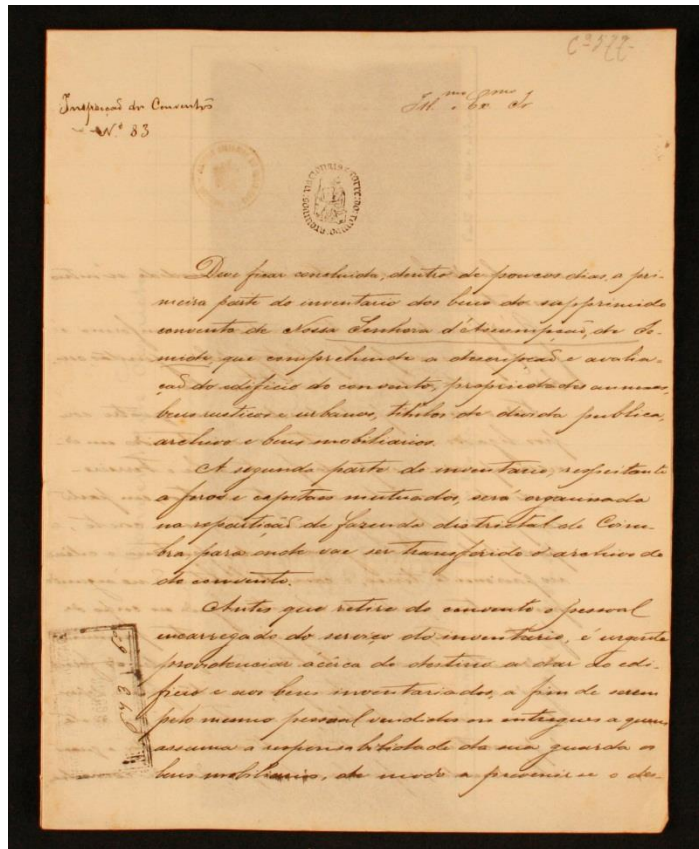 Cª 577-
Inspecção de Conventos
N.º 83
Ill.mo e Ex.mo Sr
Deve ficar concluida, dentro de poucos dias, a pri-
meira parte do inventario dos bens do supprimido
convento de Nossa Senhora d'Assumpção, de Se-
mide, que comprehende a descripção e avalia-
ção do edificio do convento, propriedades annexas,
bens rusticos e urbanos, titulos de divida publica,
archivo e bens mobiliarios.
A segunda parte do inventario, respeitante
a foros e capitaes mutuados, será organisada
na repartição de fazenda districtal de Coim-
bra, para onde vae ser transferido o archivo do
do convento.
Antes que retire do convento o pessoal
encarregado do serviço do inventario, é urgente
providenciar ácerca do destino a dar ao edi-
ficio e aos bens inventariados, a fim de serem
pelo mesmo pessoal vendidos ou entregues a quem
assuma a responsabilidade da sua guarda os
bens mobiliarios, de modo a prevenir-se o des-